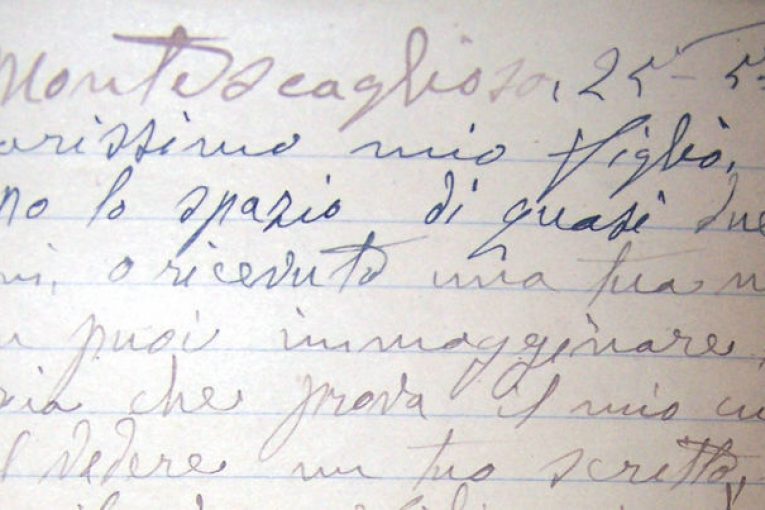 Montescaglioso, 25-5-
arissimo mio figlio,
no lo spazio di quasi due
ni, o riceuuto una tua
puoi immagginare,
che prova il mio cu
l vedere un tuo scritto,